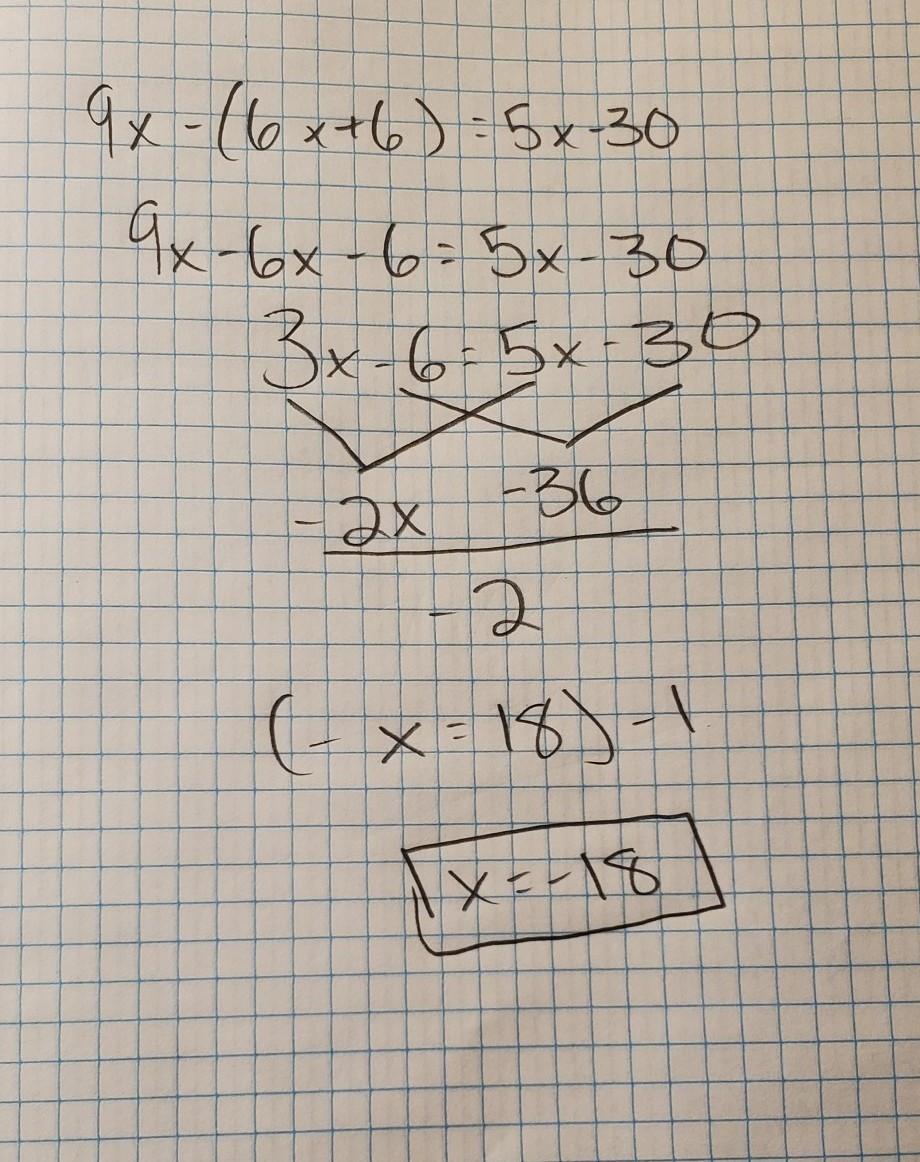 9x-(6x+6)=5x-30
9x-6x-6=5x-30
3x-6=5x-30
-2x -36
-2
(-x=18)-1
x=-18